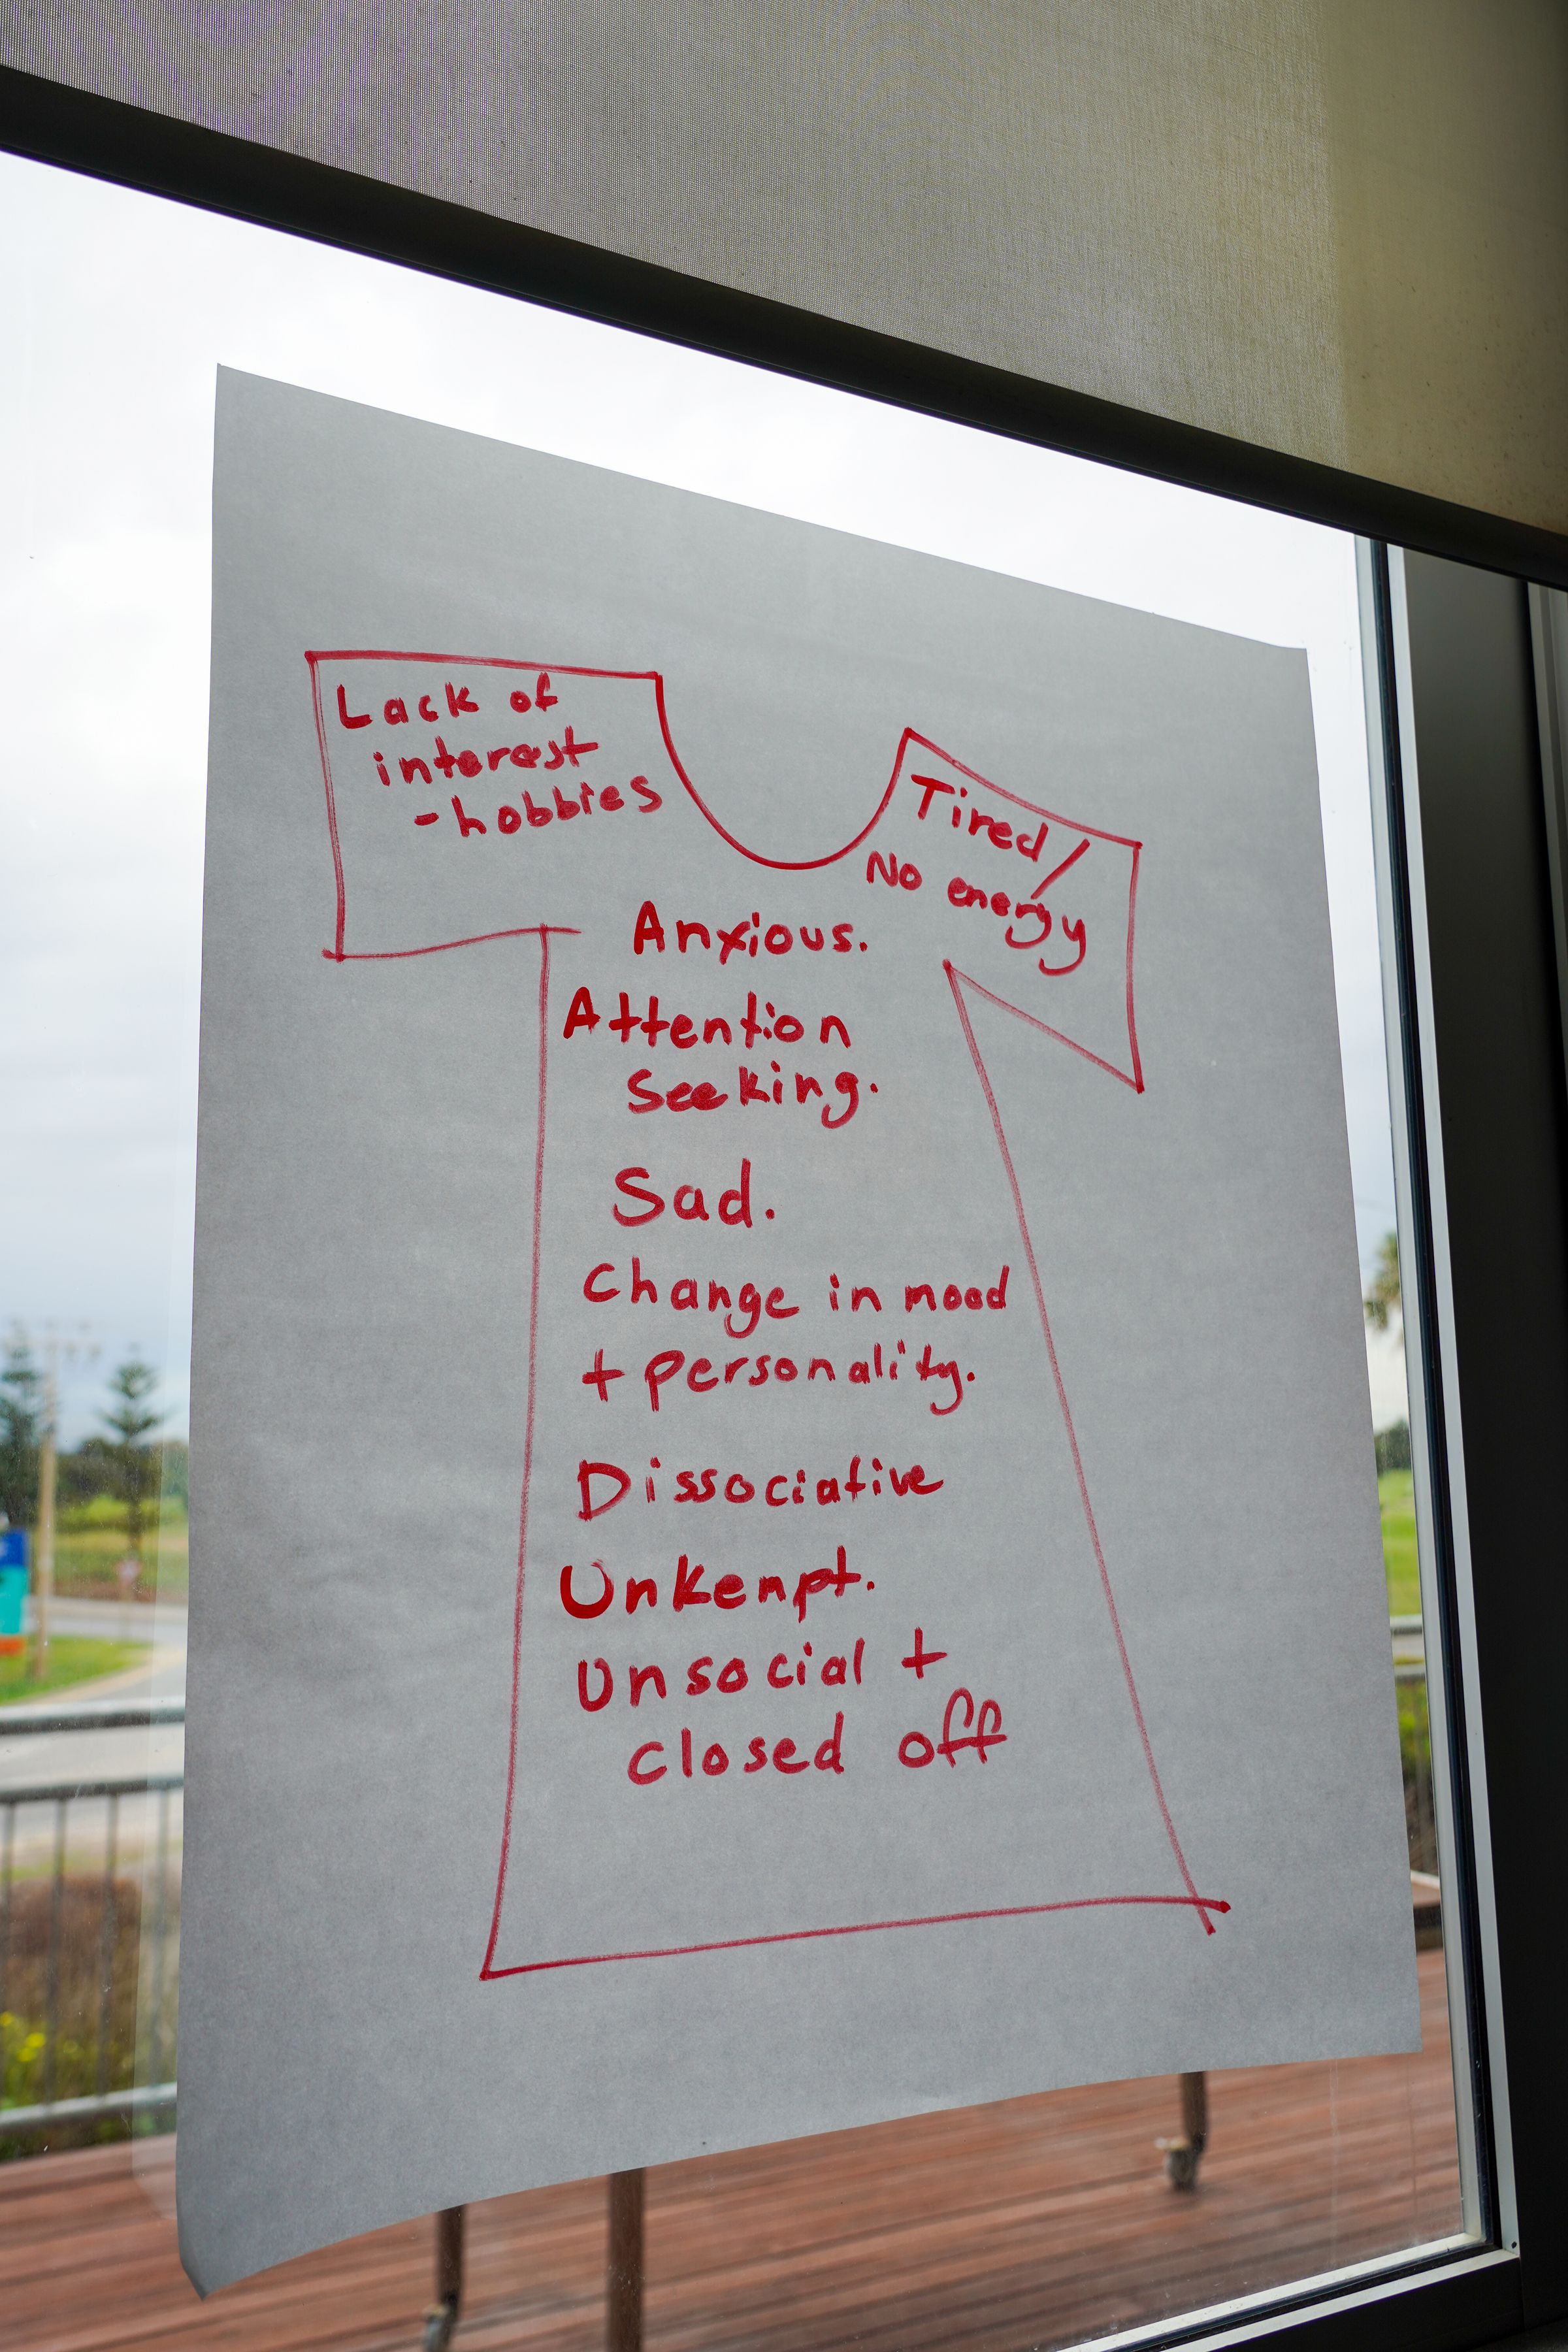 Lack of
interest
- hobbies
Tired /
No energy
Anxious.
Attention
seeking.
Sad.
Change in mood
+ personality.
Dissociative
Unkempt.
Unsocial +
closed off